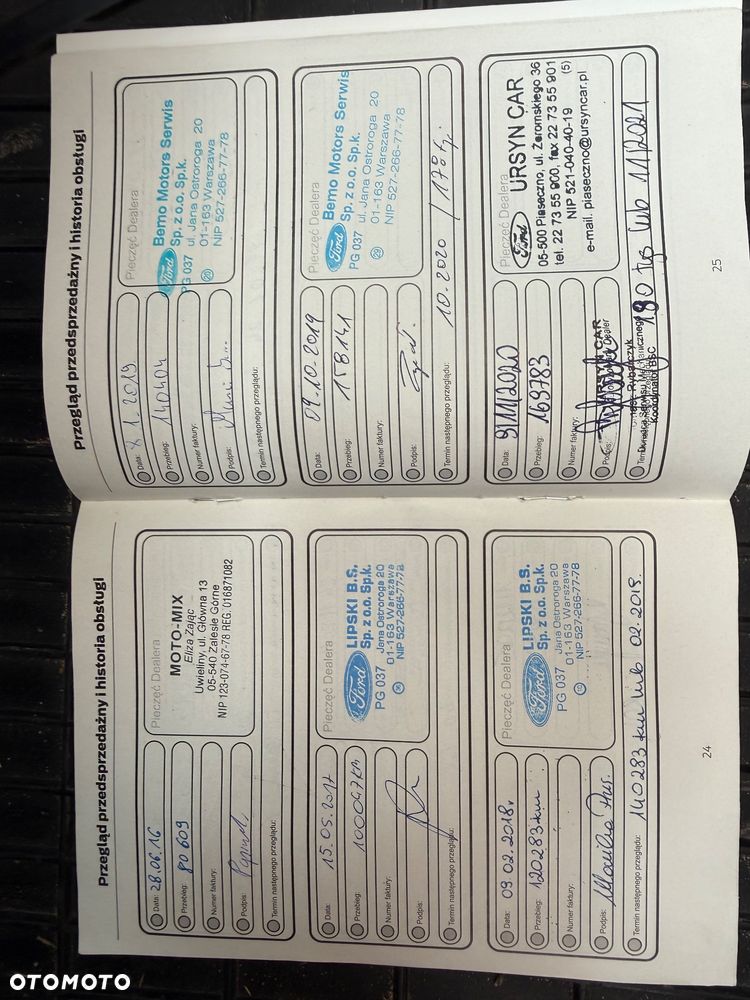 Przegląd przedsprzedażny i historia obsługi
Data: 28.06.16
Przebieg: 80 609
Numer faktury:
Podpis:
Termin następnego przeglądu:
Pieczęć Dealera
MOTO-MIX
Eliza Zając
Uwieliny, ul. Główna 13
05-540 Zalesie Górne
NIP 123-074-67-78 REG. 016871082
Data: 15.05.2017
Przebieg: 100047 KM
Numer faktury:
Podpis:
Termin następnego przeglądu:
Pieczęć Dealera
Ford LIPSKI B.S.
Sp. z o.o. Sp.k.
PG 037 Jana Ostroroga 20
01-163 Warszawa
NIP 527-266-77-78
Data: 09.02.2018r
Przebieg: 120283 km
Numer faktury:
Podpis:
Termin następnego przeglądu: 140283 km lub 02.2019.
Pieczęć Dealera
Ford LIPSKI B.S.
Sp. z o.o. Sp.k.
PG 037 Jana Ostroroga 20
01-163 Warszawa
NIP 527-266-77-78
24
Przegląd przedsprzedażny i historia obsługi
Data: 1.2019
Przebieg: 140404
Numer faktury:
Podpis:
Termin następnego przeglądu:
Pieczęć Dealera
Ford Bemo Motors Serwis
Sp. z o.o. Sp.k.
PG 037 ul. Jana Ostroroga 20
01-163 Warszawa
NIP 527-266-77-78
Data: 09.10.2019
Przebieg: 158141
Numer faktury:
Podpis:
Termin następnego przeglądu: 10.2020 / 178
Pieczęć Dealera
Ford Bemo Motors Serwis
Sp. z o.o. Sp.k.
PG 037 ul. Jana Ostroroga 20
01-163 Warszawa
NIP 527-266-77-78
Data: 9/11/2020
Przebieg: 169783
Numer faktury:
Podpis:
URSYN CAR
Dealer
Rybarczyk
Koordynator BSC
190 tys lub 11/2021
Pieczęć Dealera
Ford URSYN CAR
05-500 Piaseczno, ul. Żeromskiego 36
tel. 22 73 55 900, fax 22 73 55 901
NIP 521-040-40-19 (5)
e-mail. piaseczno@ursyncar.pl
25
OTOMOTO